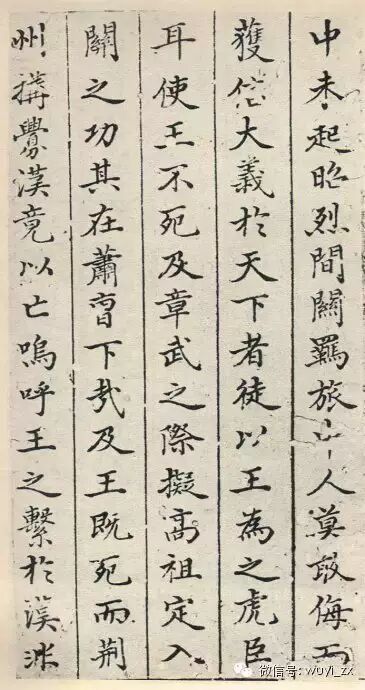 中未起昭烈間關羈旅人莫敢侮而
獲信大義於天下者徒以王為之虎臣
耳使王不死及章武之際擬高祖定入
關之功其在蕭曹下哉及王既死而荆
州搆釁漢竟以亡嗚呼王之繫於漢
微信号: wuyi_zx